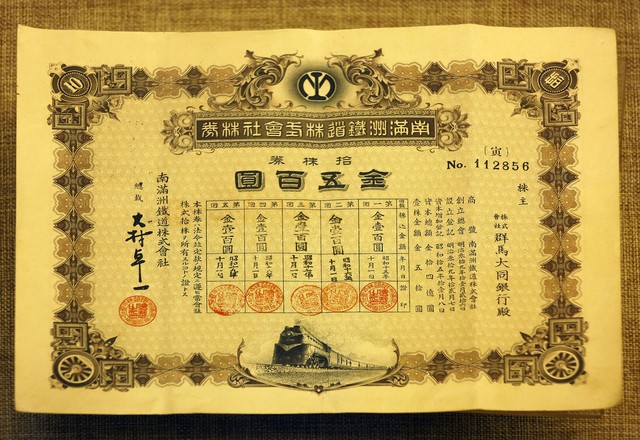 10
拾
南滿洲鐵道株式會社株券
拾株券
金五百圓
(寅)
No. 112856
株主
株式會社 群馬大同銀行殿
商號 南滿洲鐵道株式會社
創立總會 明治參拾九年拾壹月貳拾六日
設立登記 明治參拾九年拾貳月七日
資本增加登記 昭和拾五年拾壹月八日
資本總額 金拾四億圓
壹株金額 金五拾圓
回數 株込金額 年月日 證印
第一回 金壹百圓 昭和十五年十月一日
第二回 金壹百圓 昭和十五年十月一日
第三回 金壹百圓 十月一日
第四回 金壹百圓 十月一日
第五回 金壹百圓 十月一日
本株券ハ法令竝定款ノ規定ニ遵ヒ當會社
株式拾株ヲ所有スルコトヲ證ス
南滿洲鐵道株式會社
總裁 大村卓一